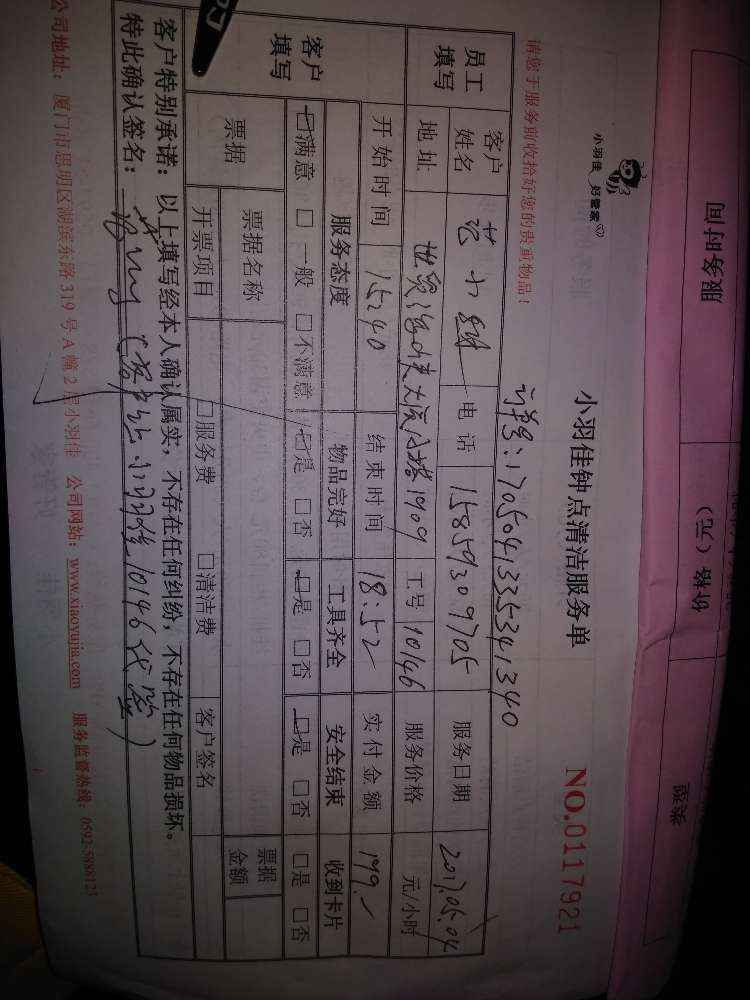 服务时间 价格（元） 类型
小羽佳 好管家
小羽佳钟点清洁服务单
NO.0117921
请您于服务前收拾好您的贵重物品！
订单号:1705041335341340
员工填写 客户姓名 小 电话 15859309705 服务日期 2017.05.04
地址 1909 工号 10146 服务价格 元/小时
客户填写 开始时间 15:40 结束时间 18:52 实付金额 199.-
服务态度 物品完好 工具齐全 安全结束 收到卡片
☑满意 □一般 □不满意 ☑是 □否 ☑是 □否 ☑是 □否 □是 □否
票据 票据名称 票据金额
开票项目 □服务费 □清洁费 客户签名
客户特别承诺：以上填写经本人确认属实，不存在任何纠纷，不存在任何物品损坏。
特此确认签名： (客户让小羽佳10146代签)
公司地址：厦门市思明区湖滨东路319号A幢2层小羽佳 公司网站：www.xiaoyujia.com 服务监督热线：0592-5888123